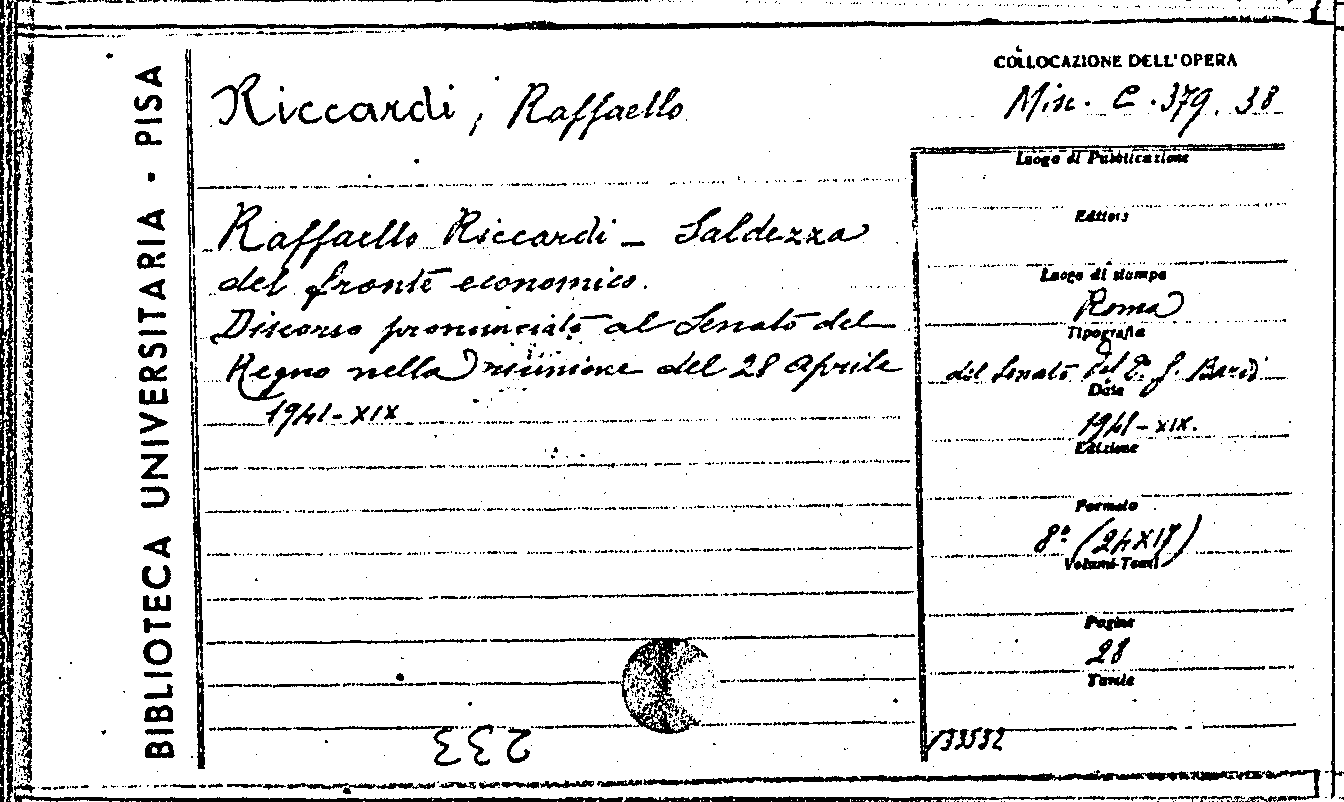 BIBLIOTECA UNIVERSITARIA · PISA
Riccardi, Raffaello
Raffaello Riccardi - Saldezza
del fronte economico.
Discorso pronunciato al Senato del
Regno nella riunione del 28 Aprile
1941-XIX
233
COLLOCAZIONE DELL'OPERA
Misc. C. 379. 38
Luogo di Pubblicazione
Editore
Luogo di stampa
Roma
Tipografia
del Senato del D. G. Bardi
Data
1941-XIX.
Edizione
Formato
8º (24X17)
Volumi-Tomi
Pagine
28
Tavole